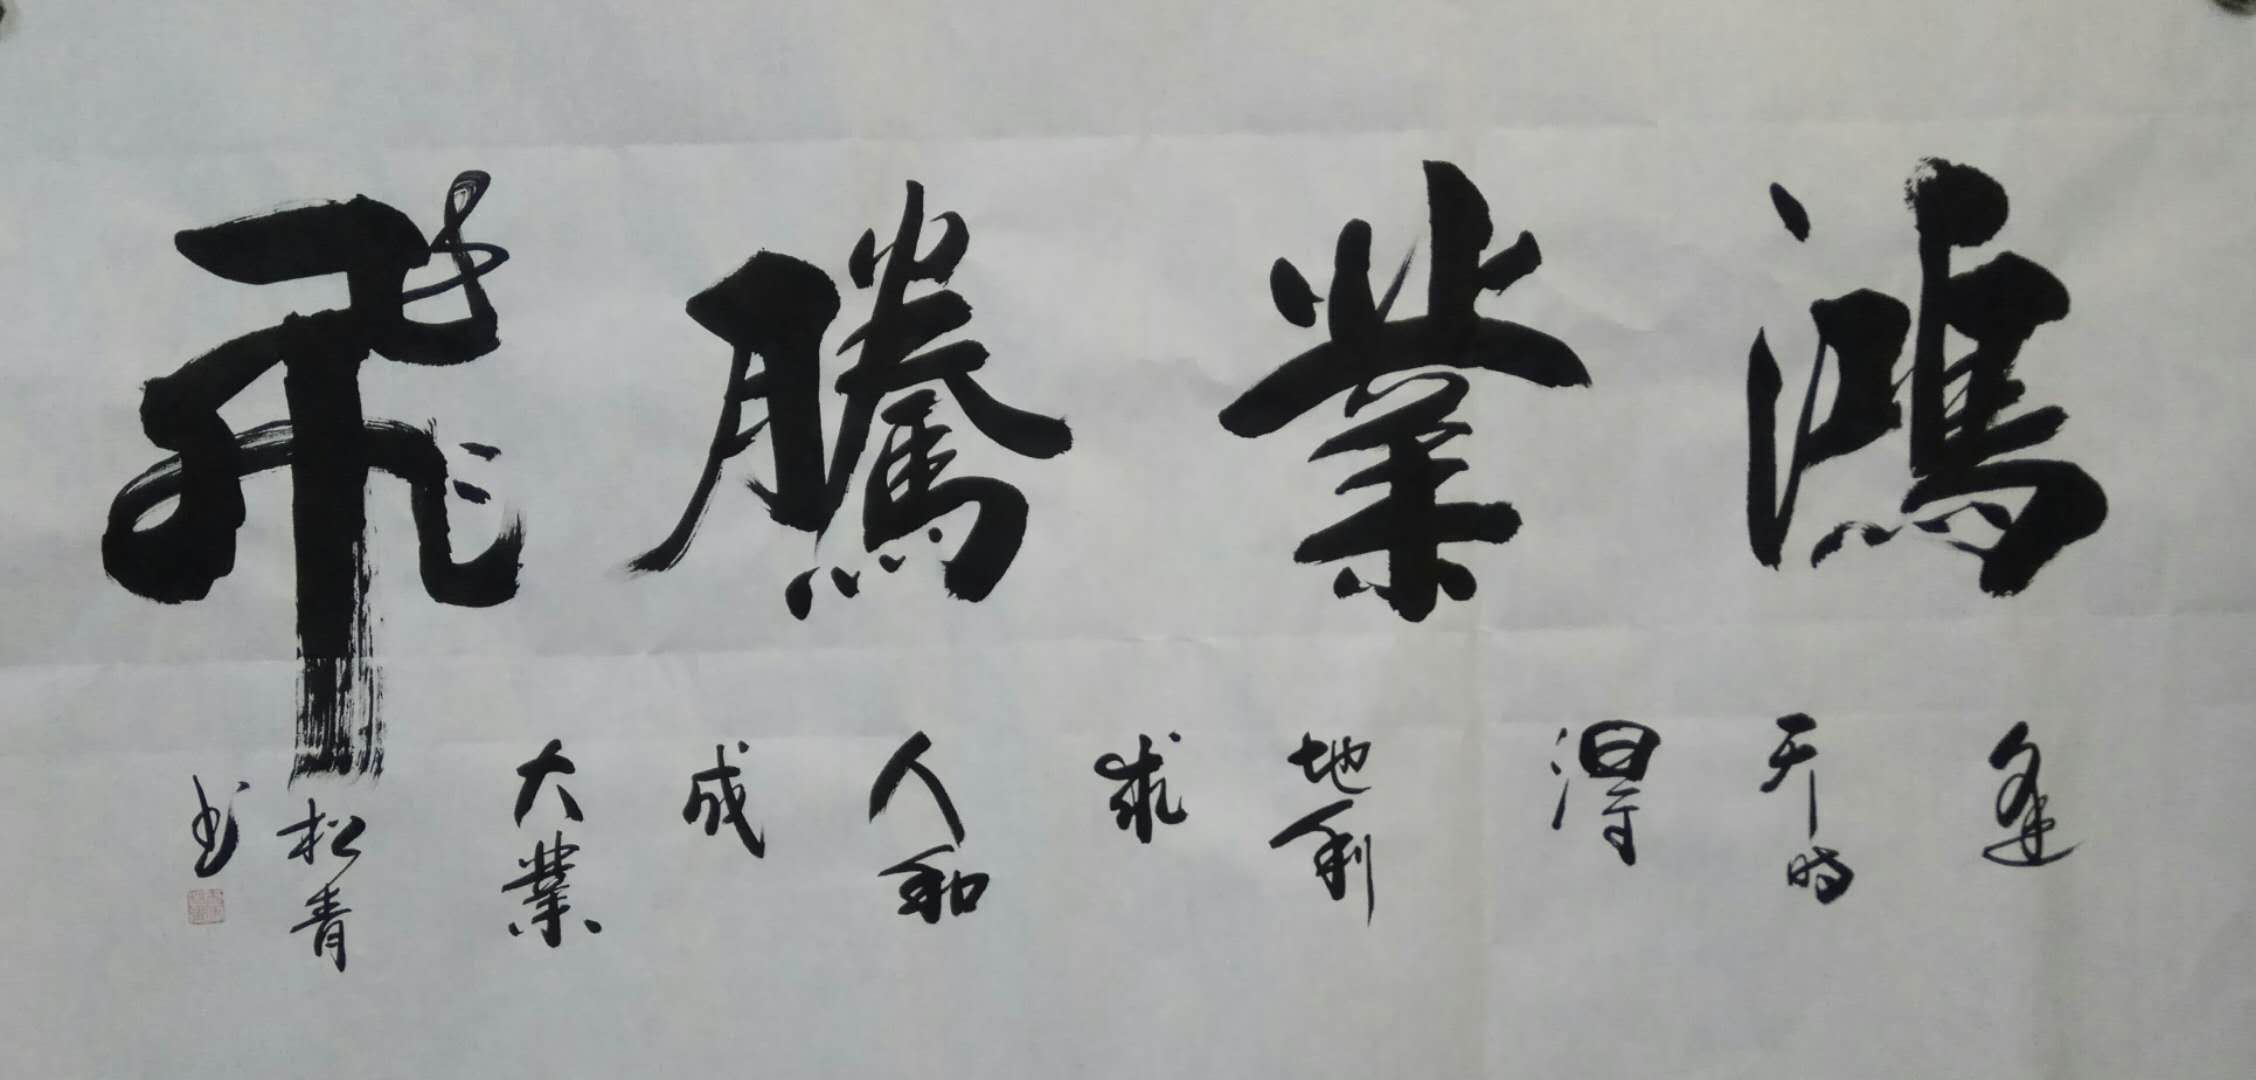 鴻業騰飛
逢
天时
得
地利
人和
成
大業
松青
书